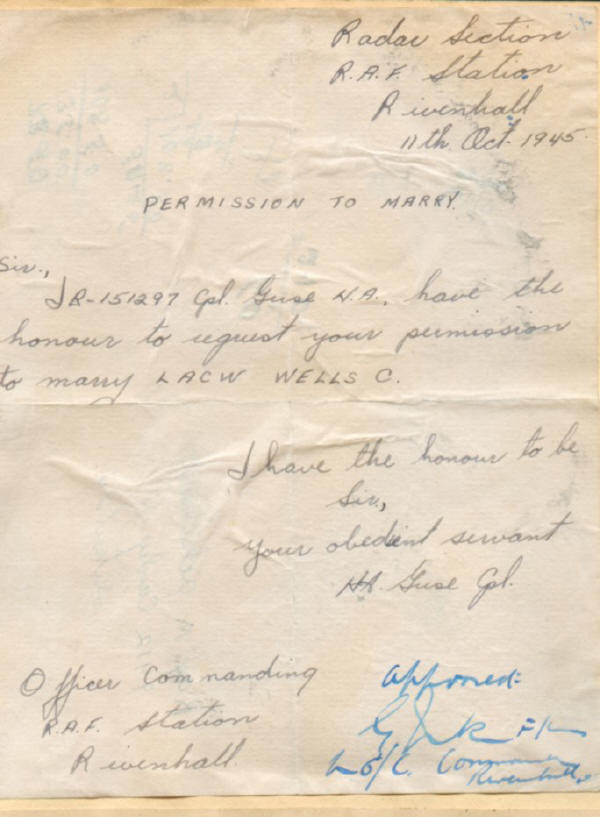 Radar Section
R.A.F. Station
Rivenhall
11th. Oct. 1945.
PERMISSION TO MARRY.
Sir.,
I R-151297 Cpl. Guse H.A., have the
honour to request your permission
to marry LACW WELLS C.
I have the honour to be
Sir,
Your obedient servant
HA. Guse Cpl.
Officer Commanding
R.A.F. Station
Rivenhall.
Approved:
O/C. Commanding
Rivenhall